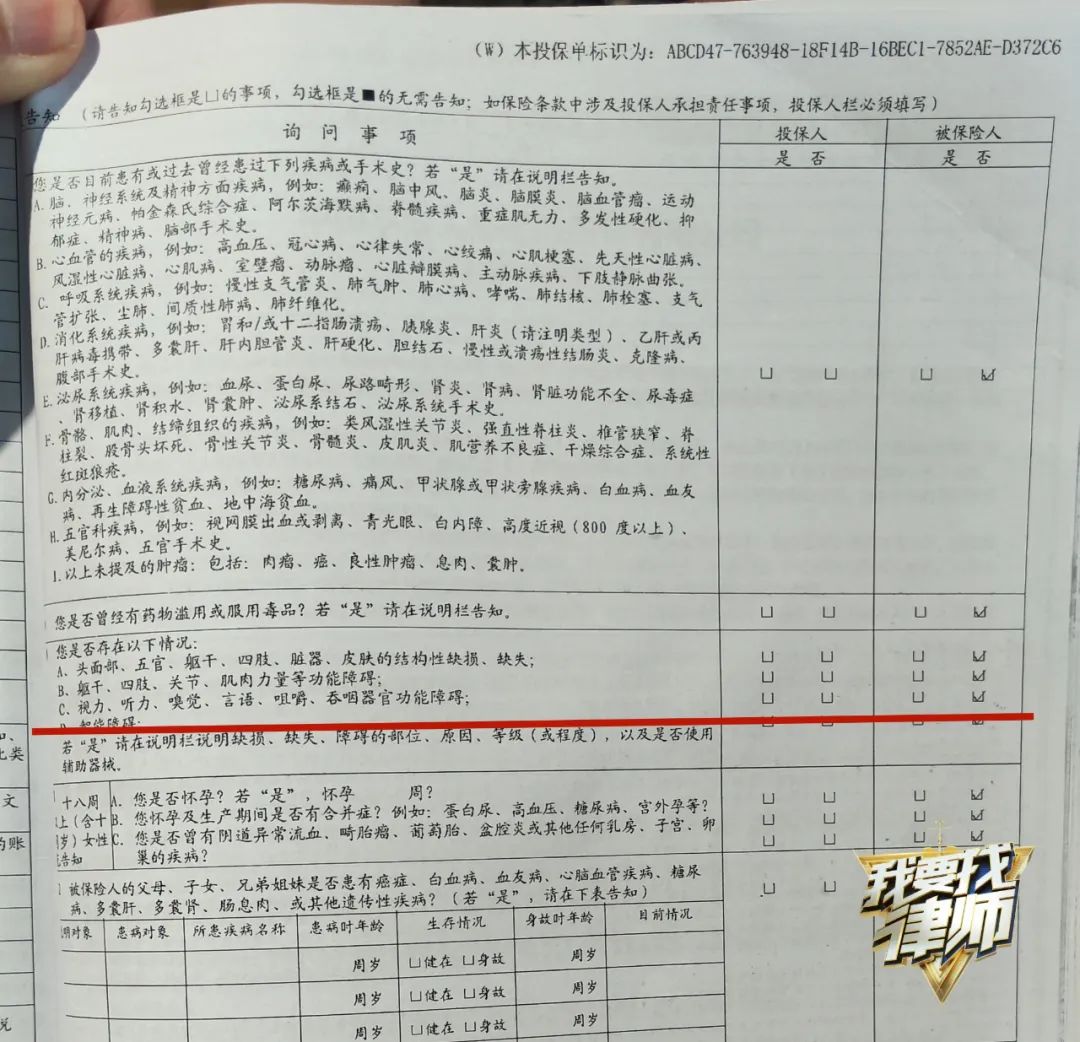 (W) 本投保单标识为: ABCD47-763948-18F14B-16BEC1-7852AE-D372C6
告知 (请告知勾选框是□的事项, 勾选框是■的无需告知; 如保险条款中涉及投保人承担责任事项, 投保人栏必须填写)
询 问 事 项
投保人
被保险人
是 否
是 否
您是否目前患有或过去曾经患过下列疾病或手术史? 若“是”请在说明栏告知。
A. 脑、神经系统及精神方面疾病, 例如: 癫痫、脑中风、脑炎、脑膜炎、脑血管瘤、运动
神经元病、帕金森氏综合症、阿尔茨海默病、脊髓疾病、重症肌无力、多发性硬化、抑
郁症、精神病、脑部手术史。
B. 心血管的疾病, 例如: 高血压、冠心病、心律失常、心绞痛、心肌梗塞、先天性心脏病、
风湿性心脏病、心肌病、室壁瘤、动脉瘤、心脏瓣膜病、主动脉疾病、下肢静脉曲张。
C. 呼吸系统疾病, 例如: 慢性支气管炎、肺气肿、肺心病、哮喘、肺结核、肺栓塞、支气
管扩张、尘肺、间质性肺病、肺纤维化。
D. 消化系统疾病, 例如: 胃和/或十二指肠溃疡、胰腺炎、肝炎(请注明类型)、乙肝或丙
肝病毒携带、多囊肝、肝内胆管炎、肝硬化、胆结石、慢性或溃疡性结肠炎、克隆病、
腹部手术史。
E. 泌尿系统疾病, 例如: 血尿、蛋白尿、尿路畸形、肾炎、肾病、肾脏功能不全、尿毒症
、肾移植、肾积水、肾囊肿、泌尿系结石、泌尿系统手术史。
F. 骨骼、肌肉、结缔组织的疾病, 例如: 类风湿性关节炎、强直性脊柱炎、椎管狭窄、脊
柱裂、股骨头坏死、骨性关节炎、骨髓炎、皮肌炎、肌营养不良症、干燥综合症、系统性
红斑狼疮。
G. 内分泌、血液系统疾病, 例如: 糖尿病、痛风、甲状腺或甲状旁腺疾病、白血病、血友
病、再生障碍性贫血、地中海贫血。
H. 五官科疾病, 例如: 视网膜出血或剥离、青光眼、白内障、高度近视(800 度以上)、
美尼尔病、五官手术史。
I. 以上未提及的肿瘤: 包括: 肉瘤、癌、良性肿瘤、息肉、囊肿。
您是否曾经有药物滥用或服用毒品? 若“是”请在说明栏告知。
您是否存在以下情况:
A、头面部、五官、躯干、四肢、脏器、皮肤的结构性缺损、缺失;
B、躯干、四肢、关节、肌肉力量等功能障碍;
C、视力、听力、嗅觉、言语、咀嚼、吞咽器官功能障碍;
D、智能障碍;
若“是”请在说明栏说明缺损、缺失、障碍的部位、原因、等级(或程度), 以及是否使用
辅助器械。
十八周
以上(含十
周岁)女性
告知
A. 您是否怀孕? 若“是”, 怀孕 周?
B. 您怀孕及生产期间是否有合并症? 例如: 蛋白尿、高血压、糖尿病、宫外孕等?
C. 您是否曾有阴道异常流血、畸胎瘤、葡萄胎、盆腔炎或其他任何乳房、子宫、卵
巢的疾病?
被保险人的父母、子女、兄弟姐妹是否患有癌症、白血病、血友病、心脑血管疾病、糖尿
病、多囊肝、多囊肾、肠息肉、或其他遗传性疾病? (若“是”, 请在下表告知)
明对象 患病对象 所患疾病名称 患病时年龄 生存情况 身故时年龄 目前情况
周岁 □健在 □身故 周岁
周岁 □健在 □身故 周岁
周岁 □健在 □身故 周岁
我要找
律师